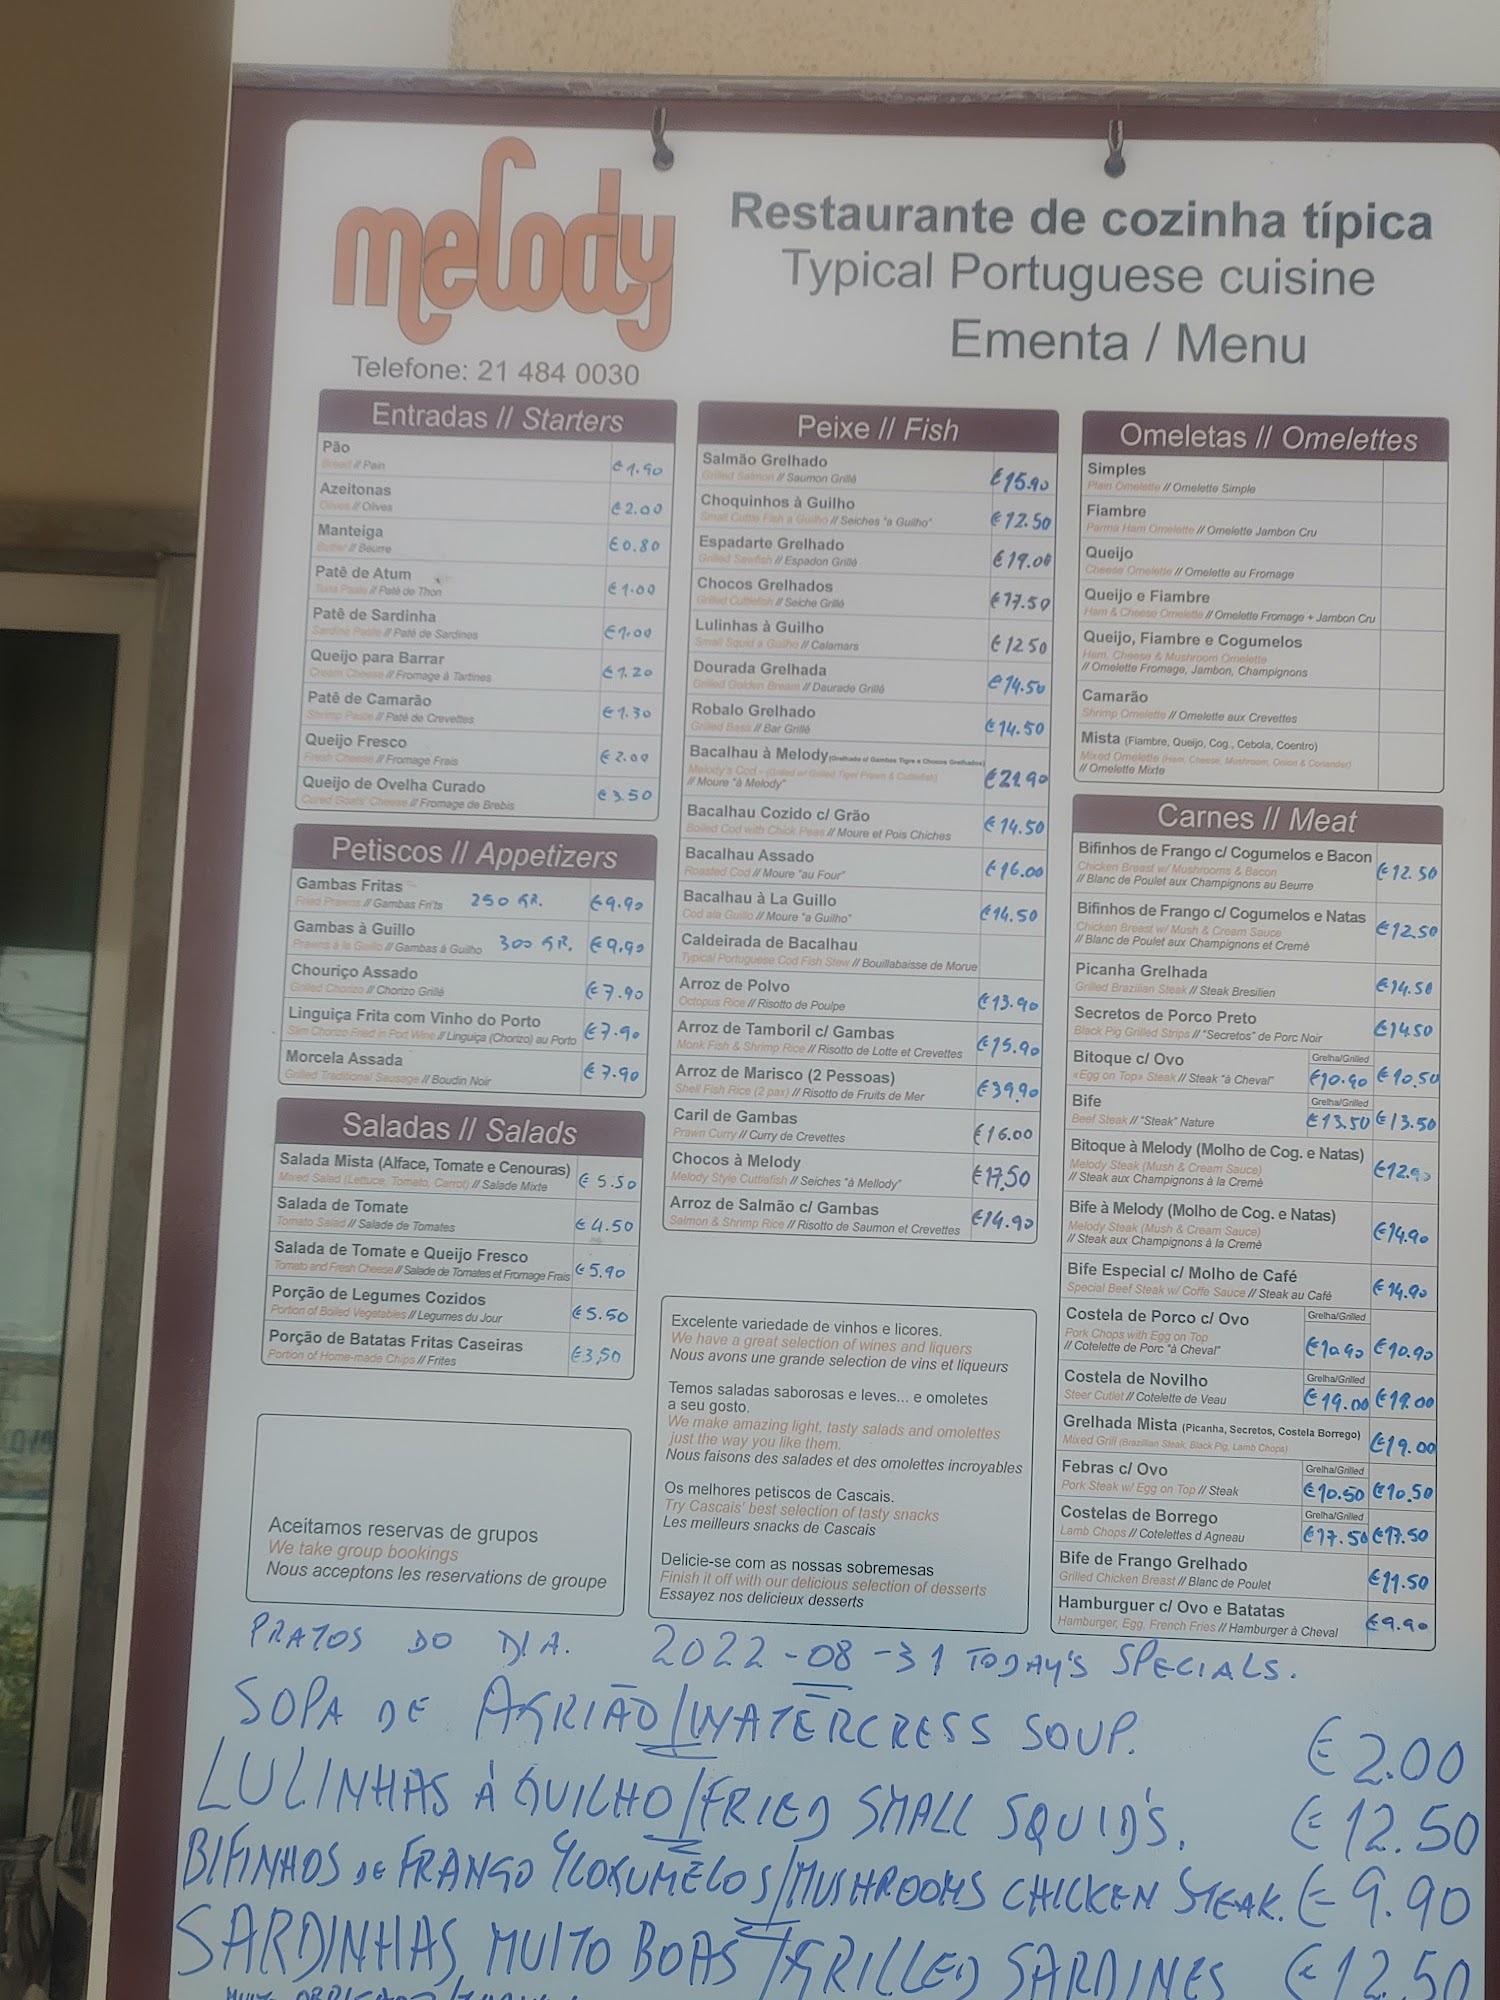 melody
Telefone: 21 484 0030
Restaurante de cozinha típica
Typical Portuguese cuisine
Ementa / Menu
Entradas // Starters
Pão €1.90
Bread // Pain
Azeitonas €2.00
Olives // Olives
Manteiga €0.80
Butter // Beurre
Patê de Atum €1.00
Tuna Paste // Paté de Thon
Patê de Sardinha €1.00
Sardine Paste // Paté de Sardines
Queijo para Barrar €1.20
Cream Cheese // Fromage à Tartines
Patê de Camarão €1.30
Shrimp Paste // Paté de Crevettes
Queijo Fresco €2.00
Fresh Cheese // Fromage Frais
Queijo de Ovelha Curado €3.50
Cured Goats' Cheese // Fromage de Brebis
Petiscos // Appetizers
Gambas Fritas 250 GR. €9.90
Fried Prawns // Gambas Frits
Gambas à Guillo 300 GR. €9.90
Prawns à la Guillo // Gambas à Guilho
Chouriço Assado €7.90
Grilled Chorizo // Chorizo Grillé
Linguiça Frita com Vinho do Porto €7.90
Slim Chorizo Fried in Port Wine // Linguiça (Chorizo) au Porto
Morcela Assada €7.90
Grilled Traditional Sausage // Boudin Noir
Saladas // Salads
Salada Mista (Alface, Tomate e Cenouras) €5.50
Mixed Salad (Lettuce, Tomato, Carrot) // Salade Mixte
Salada de Tomate €4.50
Tomato Salad // Salade de Tomates
Salada de Tomate e Queijo Fresco €5.90
Tomato and Fresh Cheese // Salade de Tomates et Fromage Frais
Porção de Legumes Cozidos €5.50
Portion of Boiled Vegetables // Legumes du Jour
Porção de Batatas Fritas Caseiras €3,50
Portion of Home-made Chips // Frites
Aceitamos reservas de grupos
We take group bookings
Nous acceptons les reservations de groupe
Peixe // Fish
Salmão Grelhado €15.90
Grilled Salmon // Saumon Grillé
Choquinhos à Guilho €12.50
Small Cuttle Fish a Guilho // Seiches "a Guilho"
Espadarte Grelhado €19.00
Grilled Sawfish // Espadon Grillé
Chocos Grelhados €17.50
Grilled Cuttlefish // Seiche Grillé
Lulinhas à Guilho €12.50
Small Squid a Guilho // Calamars
Dourada Grelhada €14.50
Grilled Golden Bream // Daurade Grillé
Robalo Grelhado €14.50
Grilled Bass // Bar Grillé
Bacalhau à Melody (Grelhado c/ Gambas Tigre e Chocos Grelhados) €21.90
Melody's Cod - (Grilled w/ Grilled Tiger Prawn & Cuttlefish)
// Moure "à Melody"
Bacalhau Cozido c/ Grão €14.50
Boiled Cod with Chick Peas // Moure et Pois Chiches
Bacalhau Assado €16.00
Roasted Cod // Moure "au Four"
Bacalhau à La Guillo €14.50
Cod ala Guillo // Moure "a Guilho"
Caldeirada de Bacalhau
Typical Portuguese Cod Fish Stew // Bouillabaisse de Morue
Arroz de Polvo €13.90
Octopus Rice // Risotto de Poulpe
Arroz de Tamboril c/ Gambas €15.90
Monk Fish & Shrimp Rice // Risotto de Lotte et Crevettes
Arroz de Marisco (2 Pessoas) €39.90
Shell Fish Rice (2 pax) // Risotto de Fruits de Mer
Caril de Gambas €16.00
Prawn Curry // Curry de Crevettes
Chocos à Melody €17,50
Melody Style Cuttlefish // Seiches "à Mellody"
Arroz de Salmão c/ Gambas €14.90
Salmon & Shrimp Rice // Risotto de Saumon et Crevettes
Excelente variedade de vinhos e licores.
We have a great selection of wines and liquers
Nous avons une grande selection de vins et liqueurs
Temos saladas saborosas e leves... e omoletes
a seu gosto.
We make amazing light, tasty salads and omolettes
just the way you like them.
Nous faisons des salades et des omolettes incroyables
Os melhores petiscos de Cascais.
Try Cascais' best selection of tasty snacks
Les meilleurs snacks de Cascais
Delicie-se com as nossas sobremesas
Finish it off with our delicious selection of desserts
Essayez nos delicieux desserts
Omeletas // Omelettes
Simples
Plain Omelette // Omelette Simple
Fiambre
Parma Ham Omelette // Omelette Jambon Cru
Queijo
Cheese Omelette // Omelette au Fromage
Queijo e Fiambre
Ham & Cheese Omelette // Omelette Fromage + Jambon Cru
Queijo, Fiambre e Cogumelos
Ham, Cheese & Mushroom Omelette
// Omelette Fromage, Jambon, Champignons
Camarão
Shrimp Omelette // Omelette aux Crevettes
Mista (Fiambre, Queijo, Cog., Cebola, Coentro)
Mixed Omelette (Ham, Cheese, Mushroom, Onion & Coriander)
// Omelette Mixte
Carnes // Meat
Bifinhos de Frango c/ Cogumelos e Bacon €12.50
Chicken Breast w/ Mushrooms & Bacon
// Blanc de Poulet aux Champignons au Beurre
Bifinhos de Frango c/ Cogumelos e Natas €12.50
Chicken Breast w/ Mush & Cream Sauce
// Blanc de Poulet aux Champignons et Cremè
Picanha Grelhada €14.50
Grilled Brazilian Steak // Steak Bresilien
Secretos de Porco Preto €14.50
Black Pig Grilled Strips // "Secretos" de Porc Noir
Bitoque c/ Ovo Grelha/Grilled
«Egg on Top» Steak // Steak "à Cheval" €10.90 €10,50
Bife Grelha/Grilled
Beef Steak // "Steak" Nature €13.50 €13.50
Bitoque à Melody (Molho de Cog. e Natas) €12.90
Melody Steak (Mush & Cream Sauce)
// Steak aux Champignons à la Cremè
Bife à Melody (Molho de Cog. e Natas) €14.90
Melody Steak (Mush & Cream Sauce)
// Steak aux Champignons à la Cremè
Bife Especial c/ Molho de Café €14.90
Special Beef Steak w/ Coffe Sauce // Steak au Café
Costela de Porco c/ Ovo Grelha/Grilled
Pork Chops with Egg on Top €10.90 €10.90
// Cotelette de Porc "à Cheval"
Costela de Novilho Grelha/Grilled
Steer Cutlet // Cotelette de Veau €19.00 €19.00
Grelhada Mista (Picanha, Secretos, Costela Borrego) €19.00
Mixed Grill (Brazilian Steak, Black Pig, Lamb Chops)
Febras c/ Ovo Grelha/Grilled
Pork Steak w/ Egg on Top // Steak €10.50 €10.50
Costelas de Borrego Grelha/Grilled
Lamb Chops // Cotelettes d Agneau €17.50 €17.50
Bife de Frango Grelhado €11.50
Grilled Chicken Breast // Blanc de Poulet
Hamburguer c/ Ovo e Batatas €9.90
Hamburger, Egg, French Fries // Hamburger à Cheval
PRATOS DO DIA. 2022-08-31 TODAY'S SPECIALS.
SOPA DE AGRIÃO/WATERCRESS SOUP. €2.00
LULINHAS À GUILHO/FRIED SMALL SQUID'S. €12.50
BIFINHOS DE FRANGO C/COGUMELOS/MUSHROOMS CHICKEN STEAK. €9.90
SARDINHAS MUITO BOAS/GRILLED SARDINES €12.50